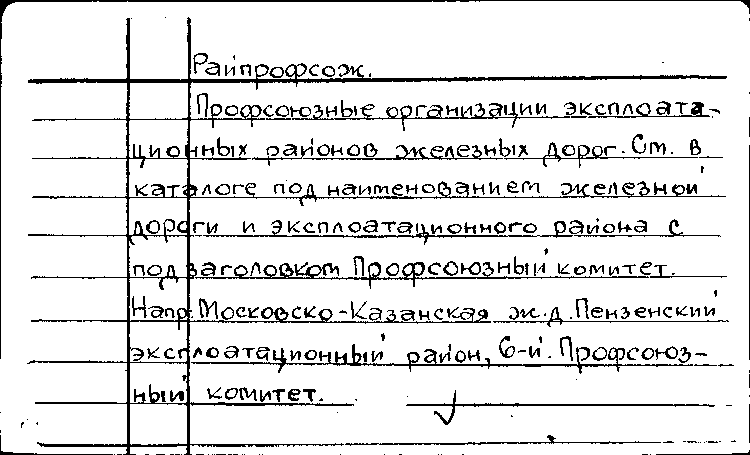 Райпрофсож.
Профсоюзные организации эксплоата-
ционных районов железных дорог. См. в
каталоге под наименованием железной
дороги и эксплоатационного района с
подзаголовком Профсоюзный комитет.
Напр. Московско-Казанская ж.д. Пензенский
эксплоатационный район, 6-й. Профсоюз-
ный комитет.